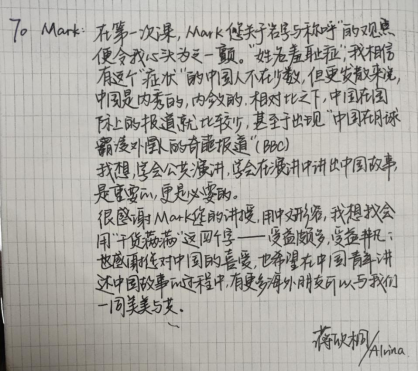 To Mark:
在第一次课, Mark您关于名字与称呼"的观点
便令我心头为之一颤。"姓名羞耻症",我相信
有这个"症状"的中国人不在少数,但更发散来说,
中国是内秀的,内敛的,相对比之下,中国在国
际上的报道就比较少,甚至于出现"中国在月球
霸凌外国人的奇葩报道"(BBC)
我想,学会公共演讲,学会在演讲中讲出中国故事,
是重要的,更是必要的。
很感谢Mark您的讲授,用中文形容,我想我会
用"干货满满"这四个字——受益颇多,受益匪浅;
也感谢您对中国的喜爱,也希望在中国青年讲
述中国故事的过程中,有更多海外朋友可以与我们
一同美美与共。
蒋欣桐/Alvina